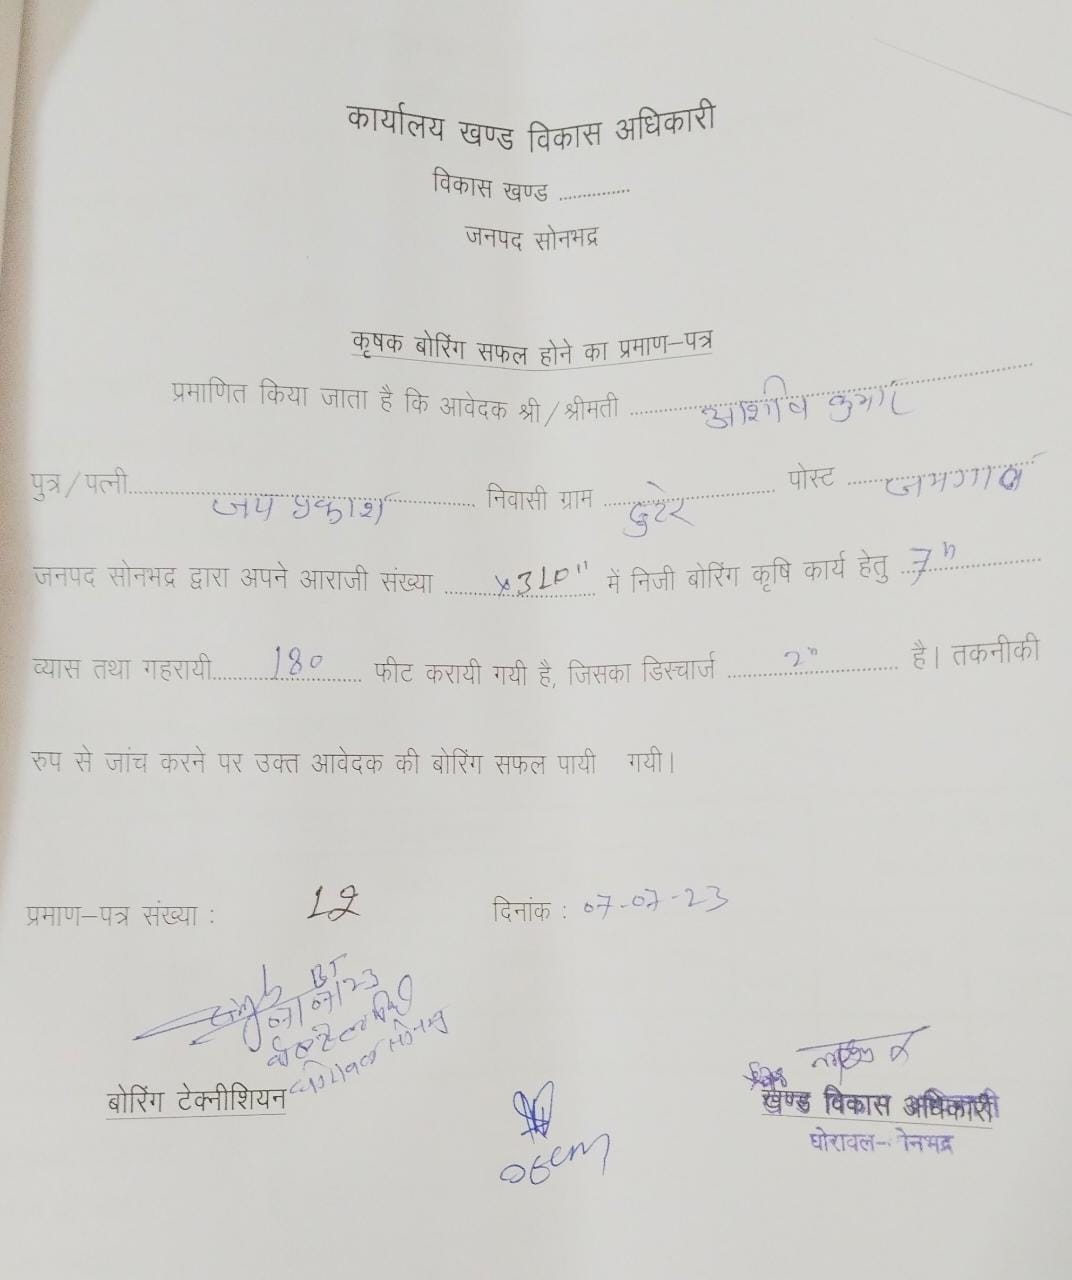 कार्यालय खण्ड विकास अधिकारी
विकास खण्ड ..............
जनपद सोनभद्र
कृषक बोरिंग सफल होने का प्रमाण-पत्र
प्रमाणित किया जाता है कि आवेदक श्री/श्रीमती कुमार
पुत्र/पत्नी जय प्रकाश निवासी ग्राम पोस्ट जमगाव
जनपद सोनभद्र द्वारा अपने आराजी संख्या में निजी बोरिंग कृषि कार्य हेतु 7"
व्यास तथा गहरायी 180 फीट करायी गयी है, जिसका डिस्चार्ज 2" है। तकनीकी
रुप से जांच करने पर उक्त आवेदक की बोरिंग सफल पायी गयी।
प्रमाण-पत्र संख्या : 12 दिनांक : 07-07-23
BT
07/07/23
बोरिंग टेक्नीशियन
खण्ड विकास अधिकारी
घोरावल-